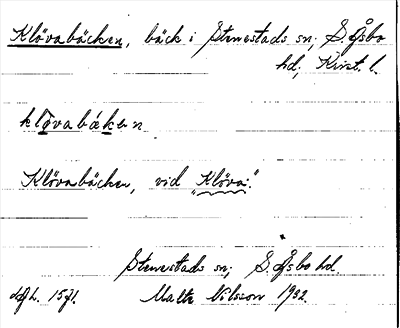 Klövabäcken, bäck i Stenestads sn; S. Åsbo
hd, Krist. l.
kløvabæken
Klövabäcken, vid "Klöva".
Stenestads sn; S. Åsbo hd.
Malte Nilsson 1932.